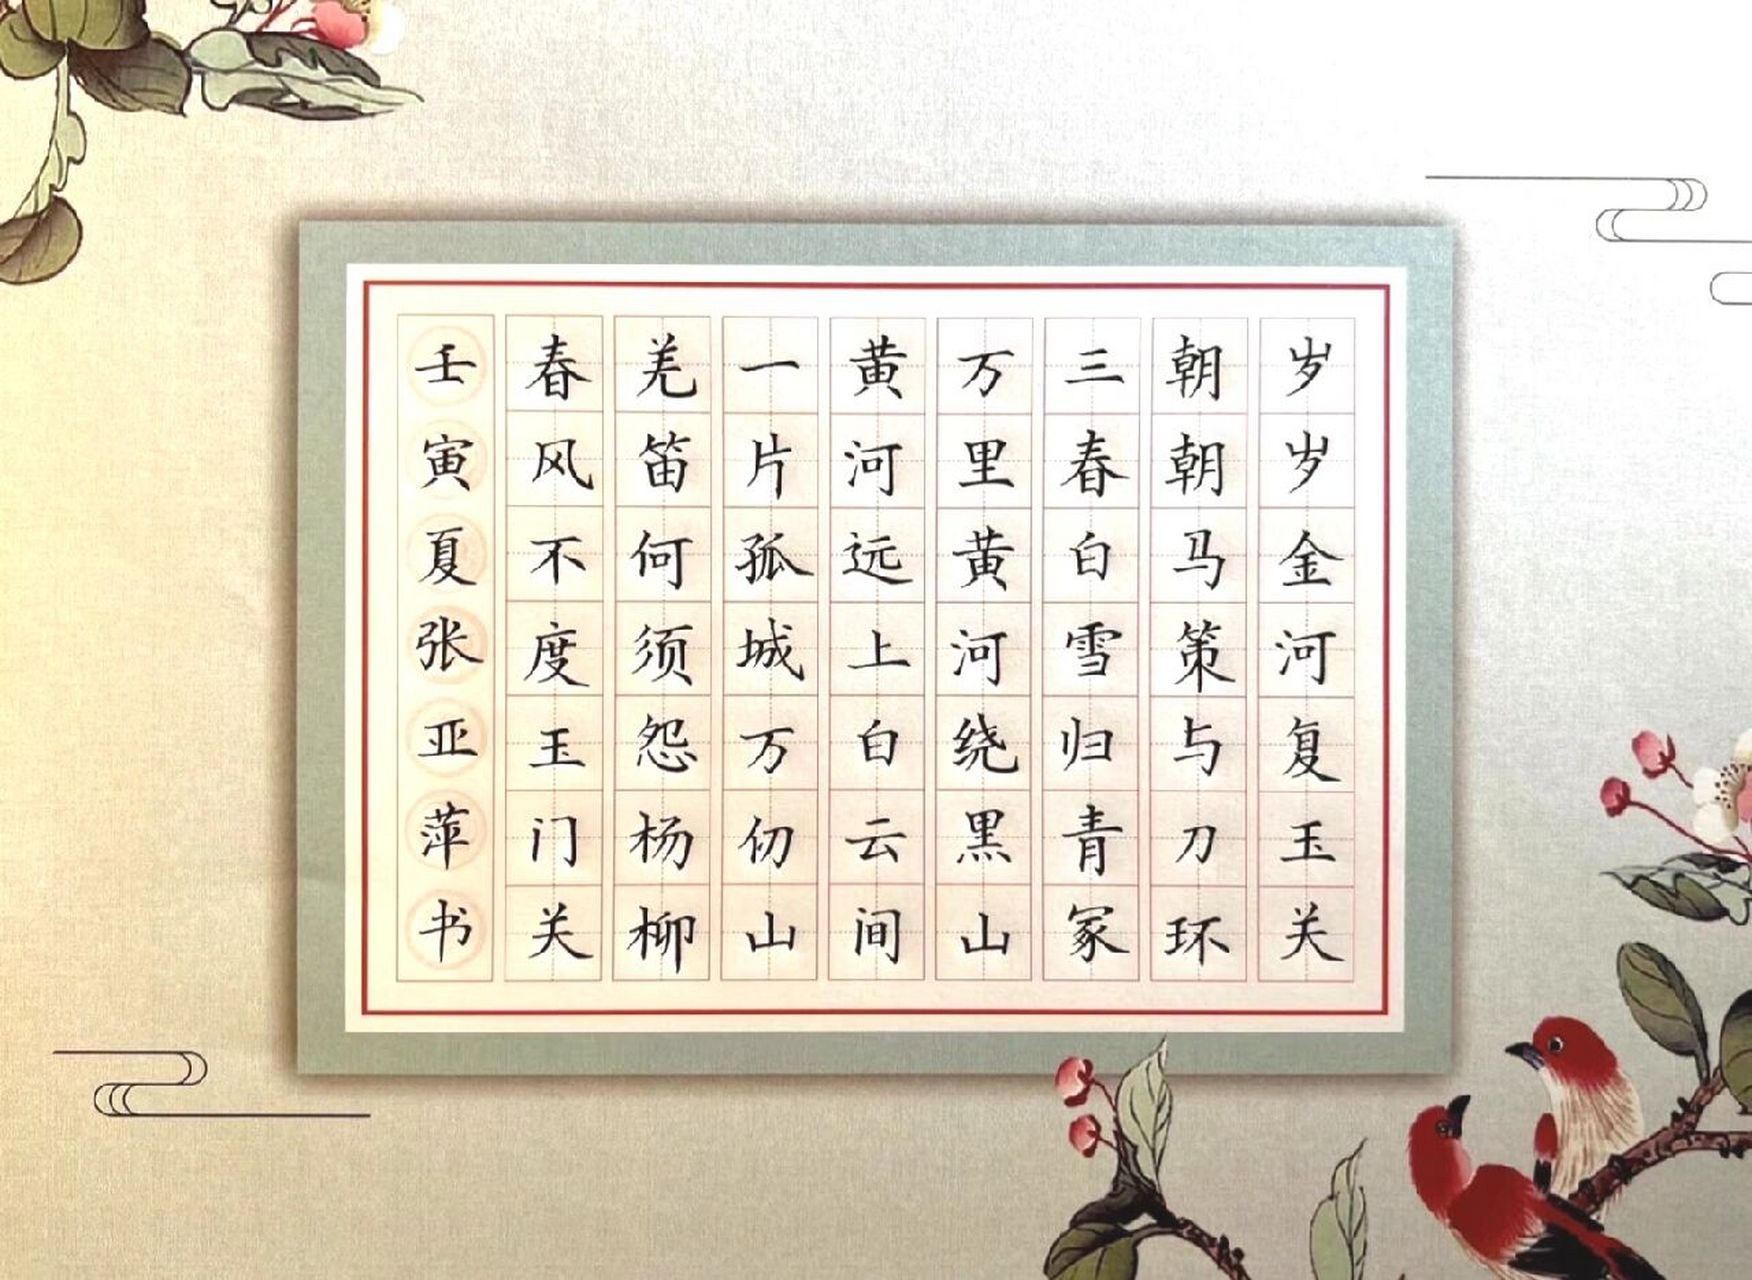 岁岁金河复玉关
朝朝马策与刀环
三春白雪归青冢
万里黄河绕黑山
黄河远上白云间
一片孤城万仞山
羌笛何须怨杨柳
春风不度玉门关
壬寅夏张亚萍书